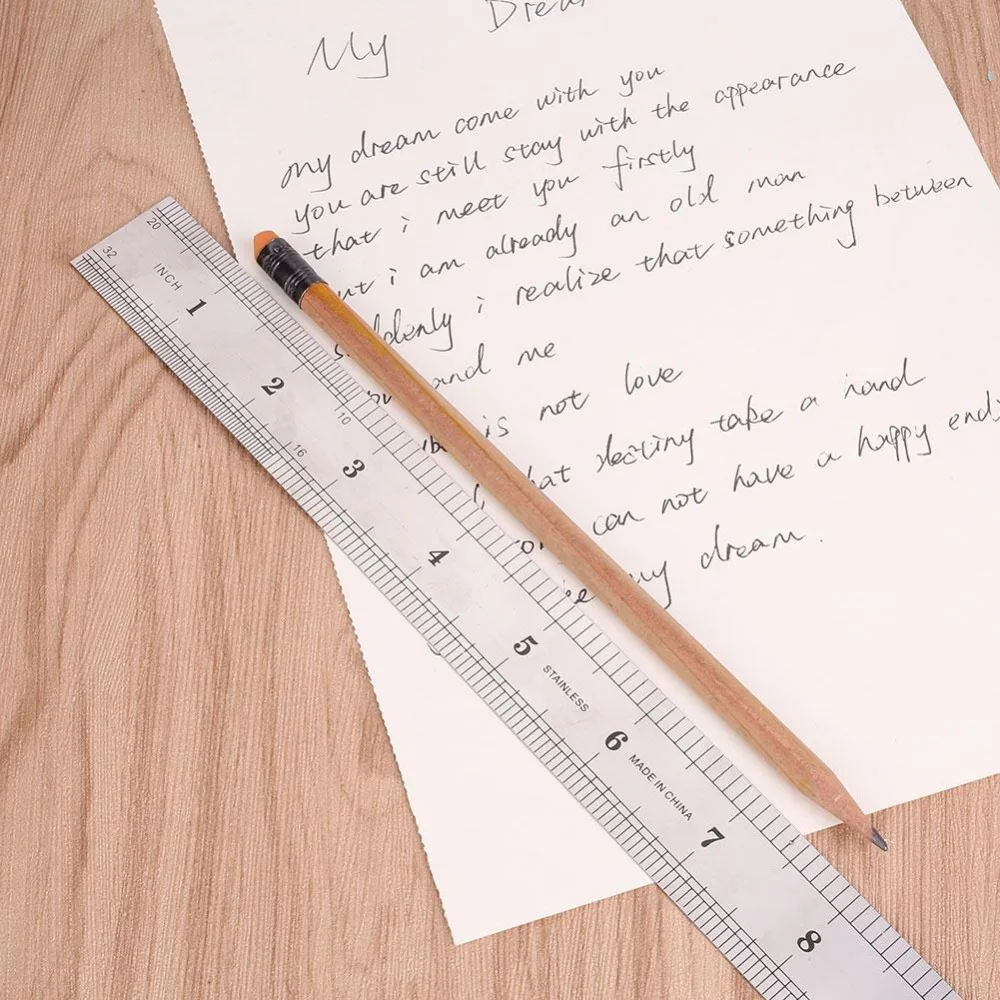 My
my dream come with you
you are still stay with the appearance
that i meet you firstly
i am already an old man
i realize that something between
and me
is not love
destiny take a hand
can not have a happy
my dream.
32
20
INCH
1
2
10
16
3
4
5
STAINLESS
6
MADE IN CHINA
7
8